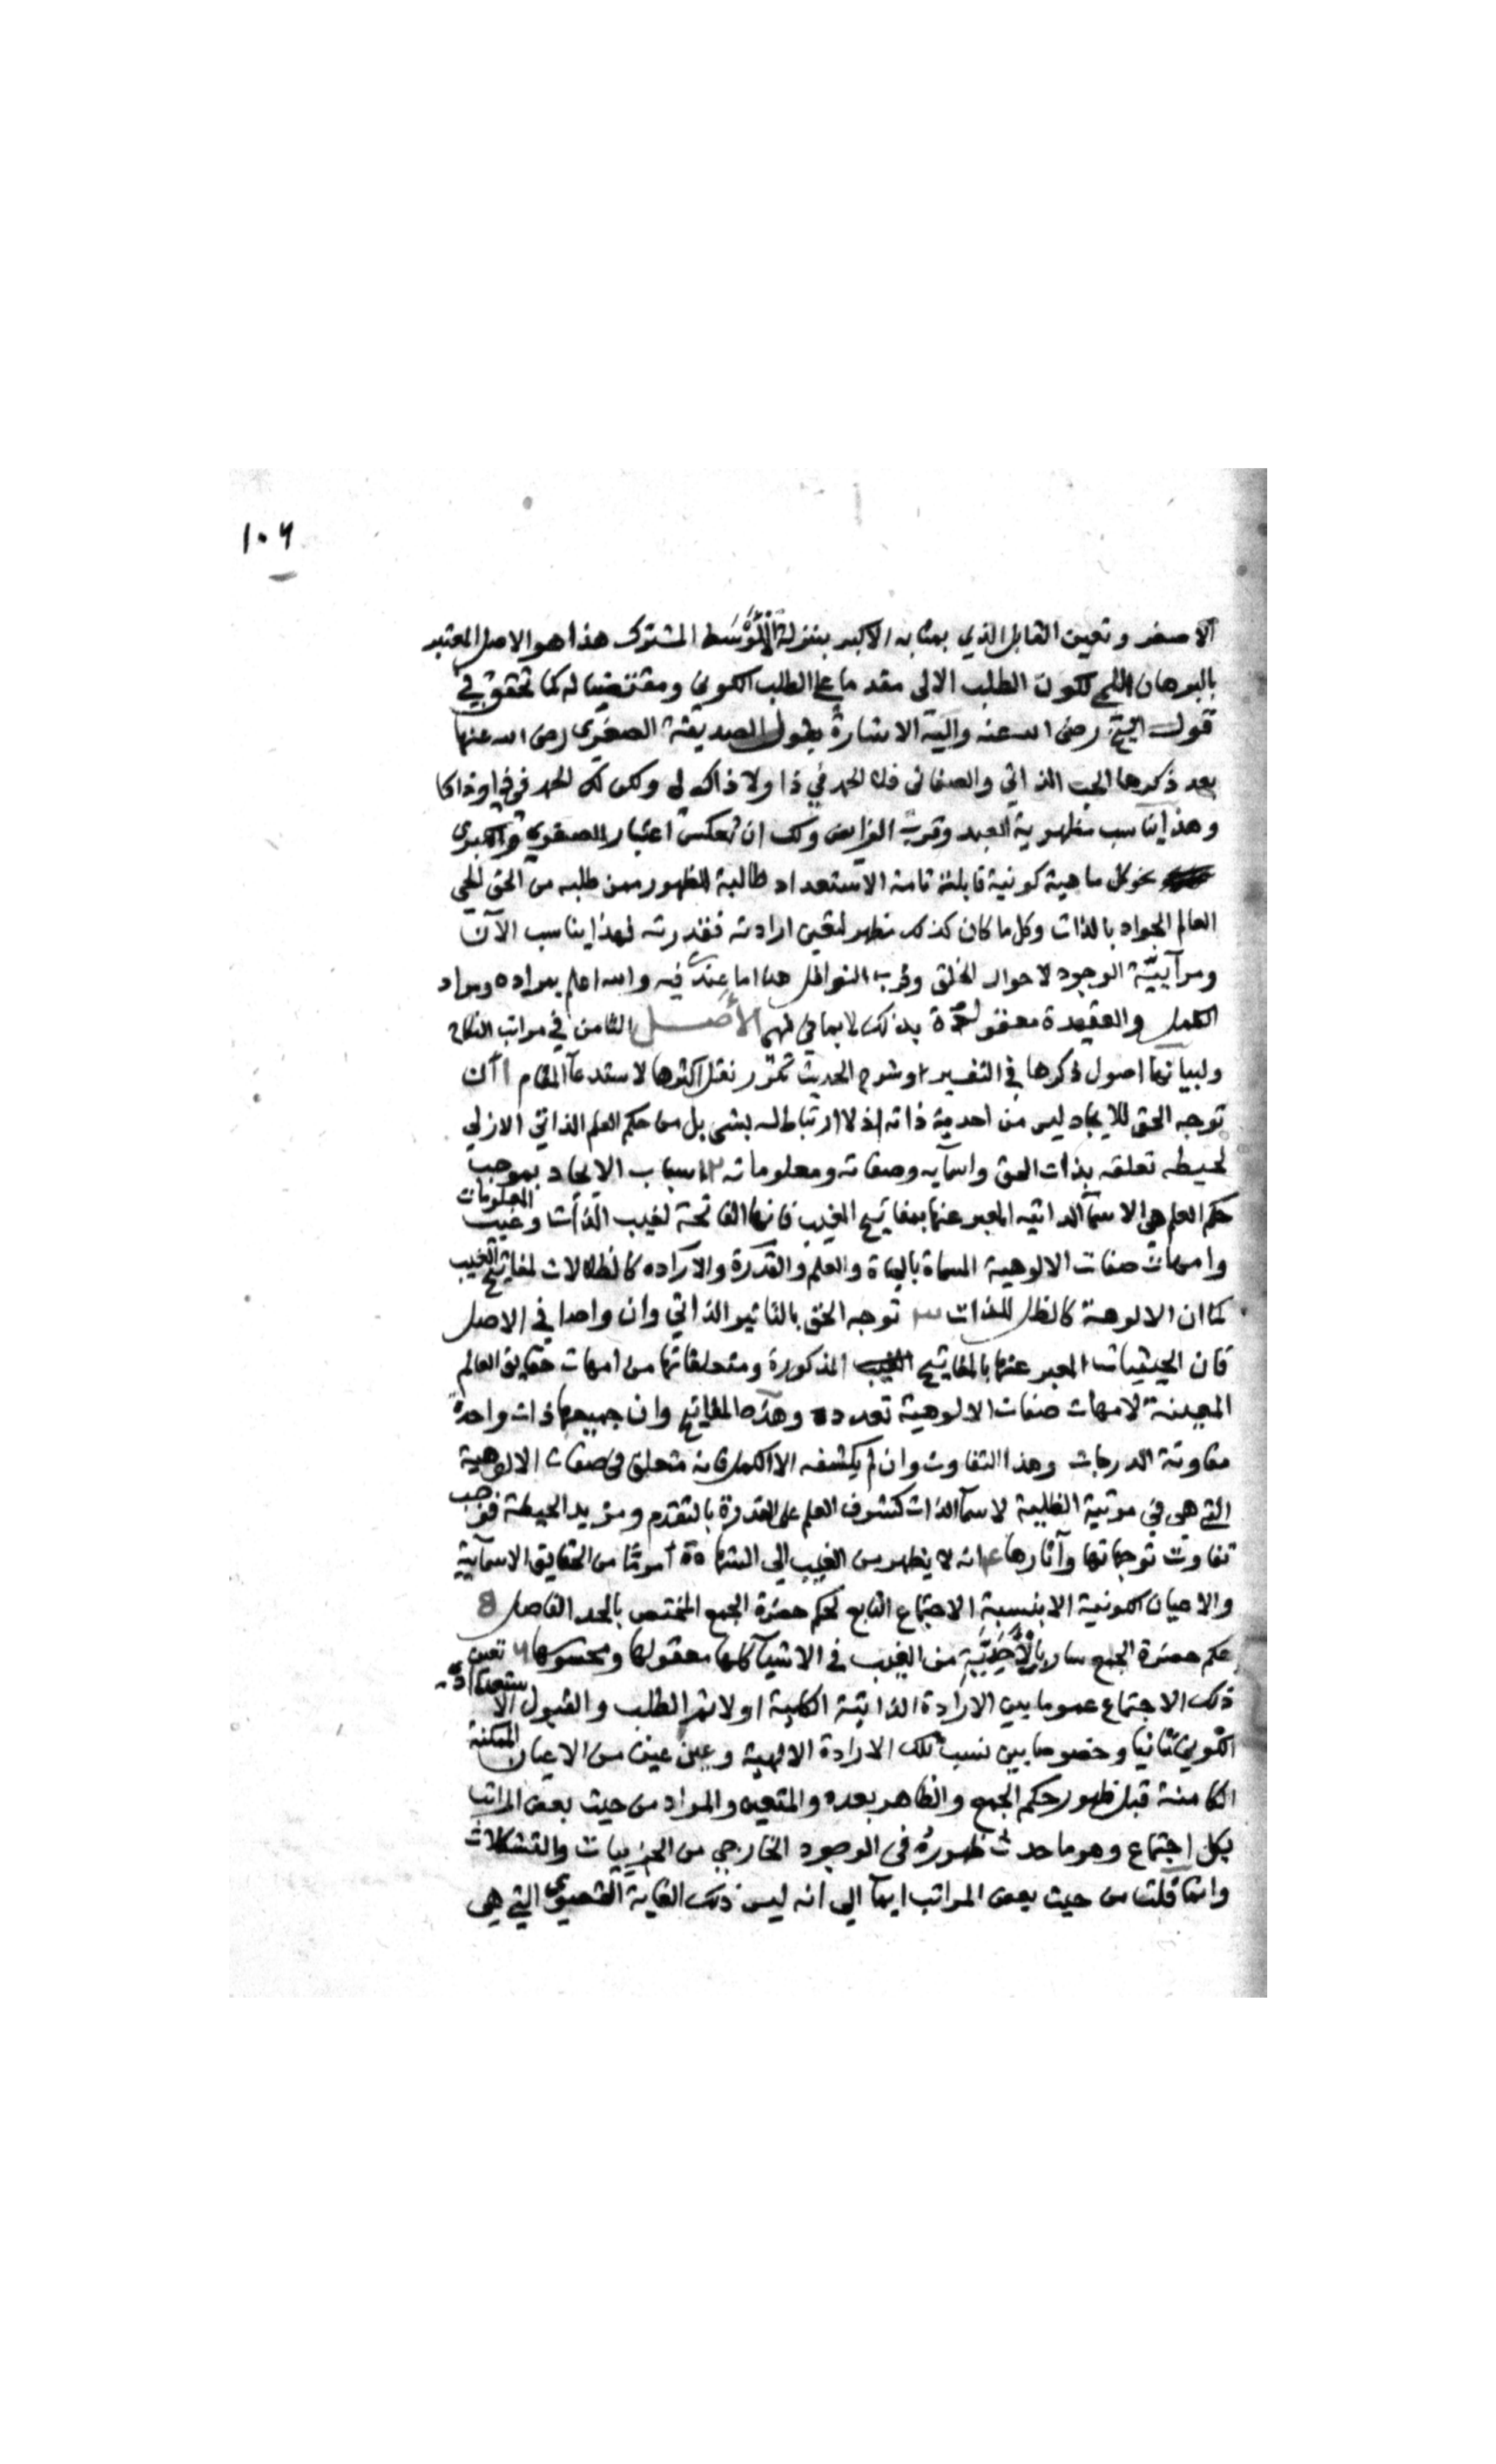 ١٠٦
الاصغر وتعين القابل الذي بمثابه الاكبر بمنزلة الْاَوْسَط المشترك هذا هو الاصل المعتبر
بالبرهان اللمي لكون الطلب الالهى مقد ما على الطلب الكوني ومقتضيا له كما تحقق في
قول الشيخ رضى الله عنه واليه الاشارة بقول الصديقة الصغرى رضى الله عنها
بعد ذكرها الحب الذاتي والصفاتى فلا الحمد في ذا ولا ذاك لى ولكن لك الحمد في ذا وذاكا
وهذا يناسب مظهرية العبد وقرب الفرايض ولك ان تعكس اعتبار الصغرى والكبرى
نحو كل ماهية كونية قابلة تامة الاستعداد طالبة للظهور ممن طلبه من الحق الحي
العالم الجواد بالذات وكل ما كان كذلك تظهر لتعين ارادته فقدرته لهذا يناسب الآن
ومرآيية الوجود لاحوال الخلق وقرب النوافل هذا ما عندى فيه والله اعلم بمراده ومراد
الكمل والعقيدة معقودة بذلك لا بما في فهم الأصــل الثامن في مراتب النكاح
ولبيانها اصول ذكرها في التفسير وشرح الحديث تكرر نقل اكثرها لاستدعآ المقام ١ ان
توجه الحق للايجاد ليس من احدية ذاته اذ لا ارتباط له بشى بل من حكم العلم الذاتي الازلي
لحيطه تعلقه بذات الحق واسمآيه وصفاته ومعلوماته ٢ اسباب الايجاد بموجب
حكم العلم هى الاسمآ الذاتيه المعبر عنها بمفاتيح الغيب فانها الفاتحة لغيب الذات وغيب المعلومات
وامهات صفات الالوهية المسماة بالحياة والعلم والقدرة والاراده كالظلالات لمفاتيح الغيب
كما ان الالوهة كالظل للذات ٣ توجه الحق بالتاثير الذاتي وان واحدا في الاصل
فان الحيثيات المعبر عنها بالمفاتيح المذكورة ومتعلقاتها من امهات حقايق العالم
المعينة لامهات صفات الالوهية تعدده وهذه المفاتيح وان جميعها ذات واحدة
متفاوتة الدرجات وهذا التفاوت وان لم يكشفه الا الكمل فانه متحلق في صفات الالوهية
التي هى في مرتبة الظلية لاسمآ الذات كشوف العلم على القدرة بالتقدم ومزيد الحيطة فوجب
تفاوت توجهاتها وآثارها ٤ انه لا يظهر من الغيب الى الشهادة امر ما من الحقايق الاسمآيية
والاعيان الكونية الا بنسبة الاجتماع التابع لحكم حضرة الجمع المختص بالحد الفاصل 8
حكم حضرة الجمع سار بالْأَحَدِيَّةِ من الغيب في الاشيآ كلها معقولها ومحسوسها ٦ تعين
ذلك الاجتماع عموما بين الارادة الذاتية الكلية اولا ثم الطلب والقبول الاستعدادى
الكوني ثانيا وخصوصا بين نسب تلك الارادة الالهية وعين عين من الاعيان الممكنة
الكامنة قبل ظهور حكم الجمع والظاهر بعده والمتعين والمراد من حيث بعض المراتب
بكل اجتماع وهو ما حدث ظهوره في الوجود الخارجي من الجزييات والتشكلات
وانما قلت من حيث بعض المراتب ايمآ الى انه ليس ذلك الغاية القصوى التي هي